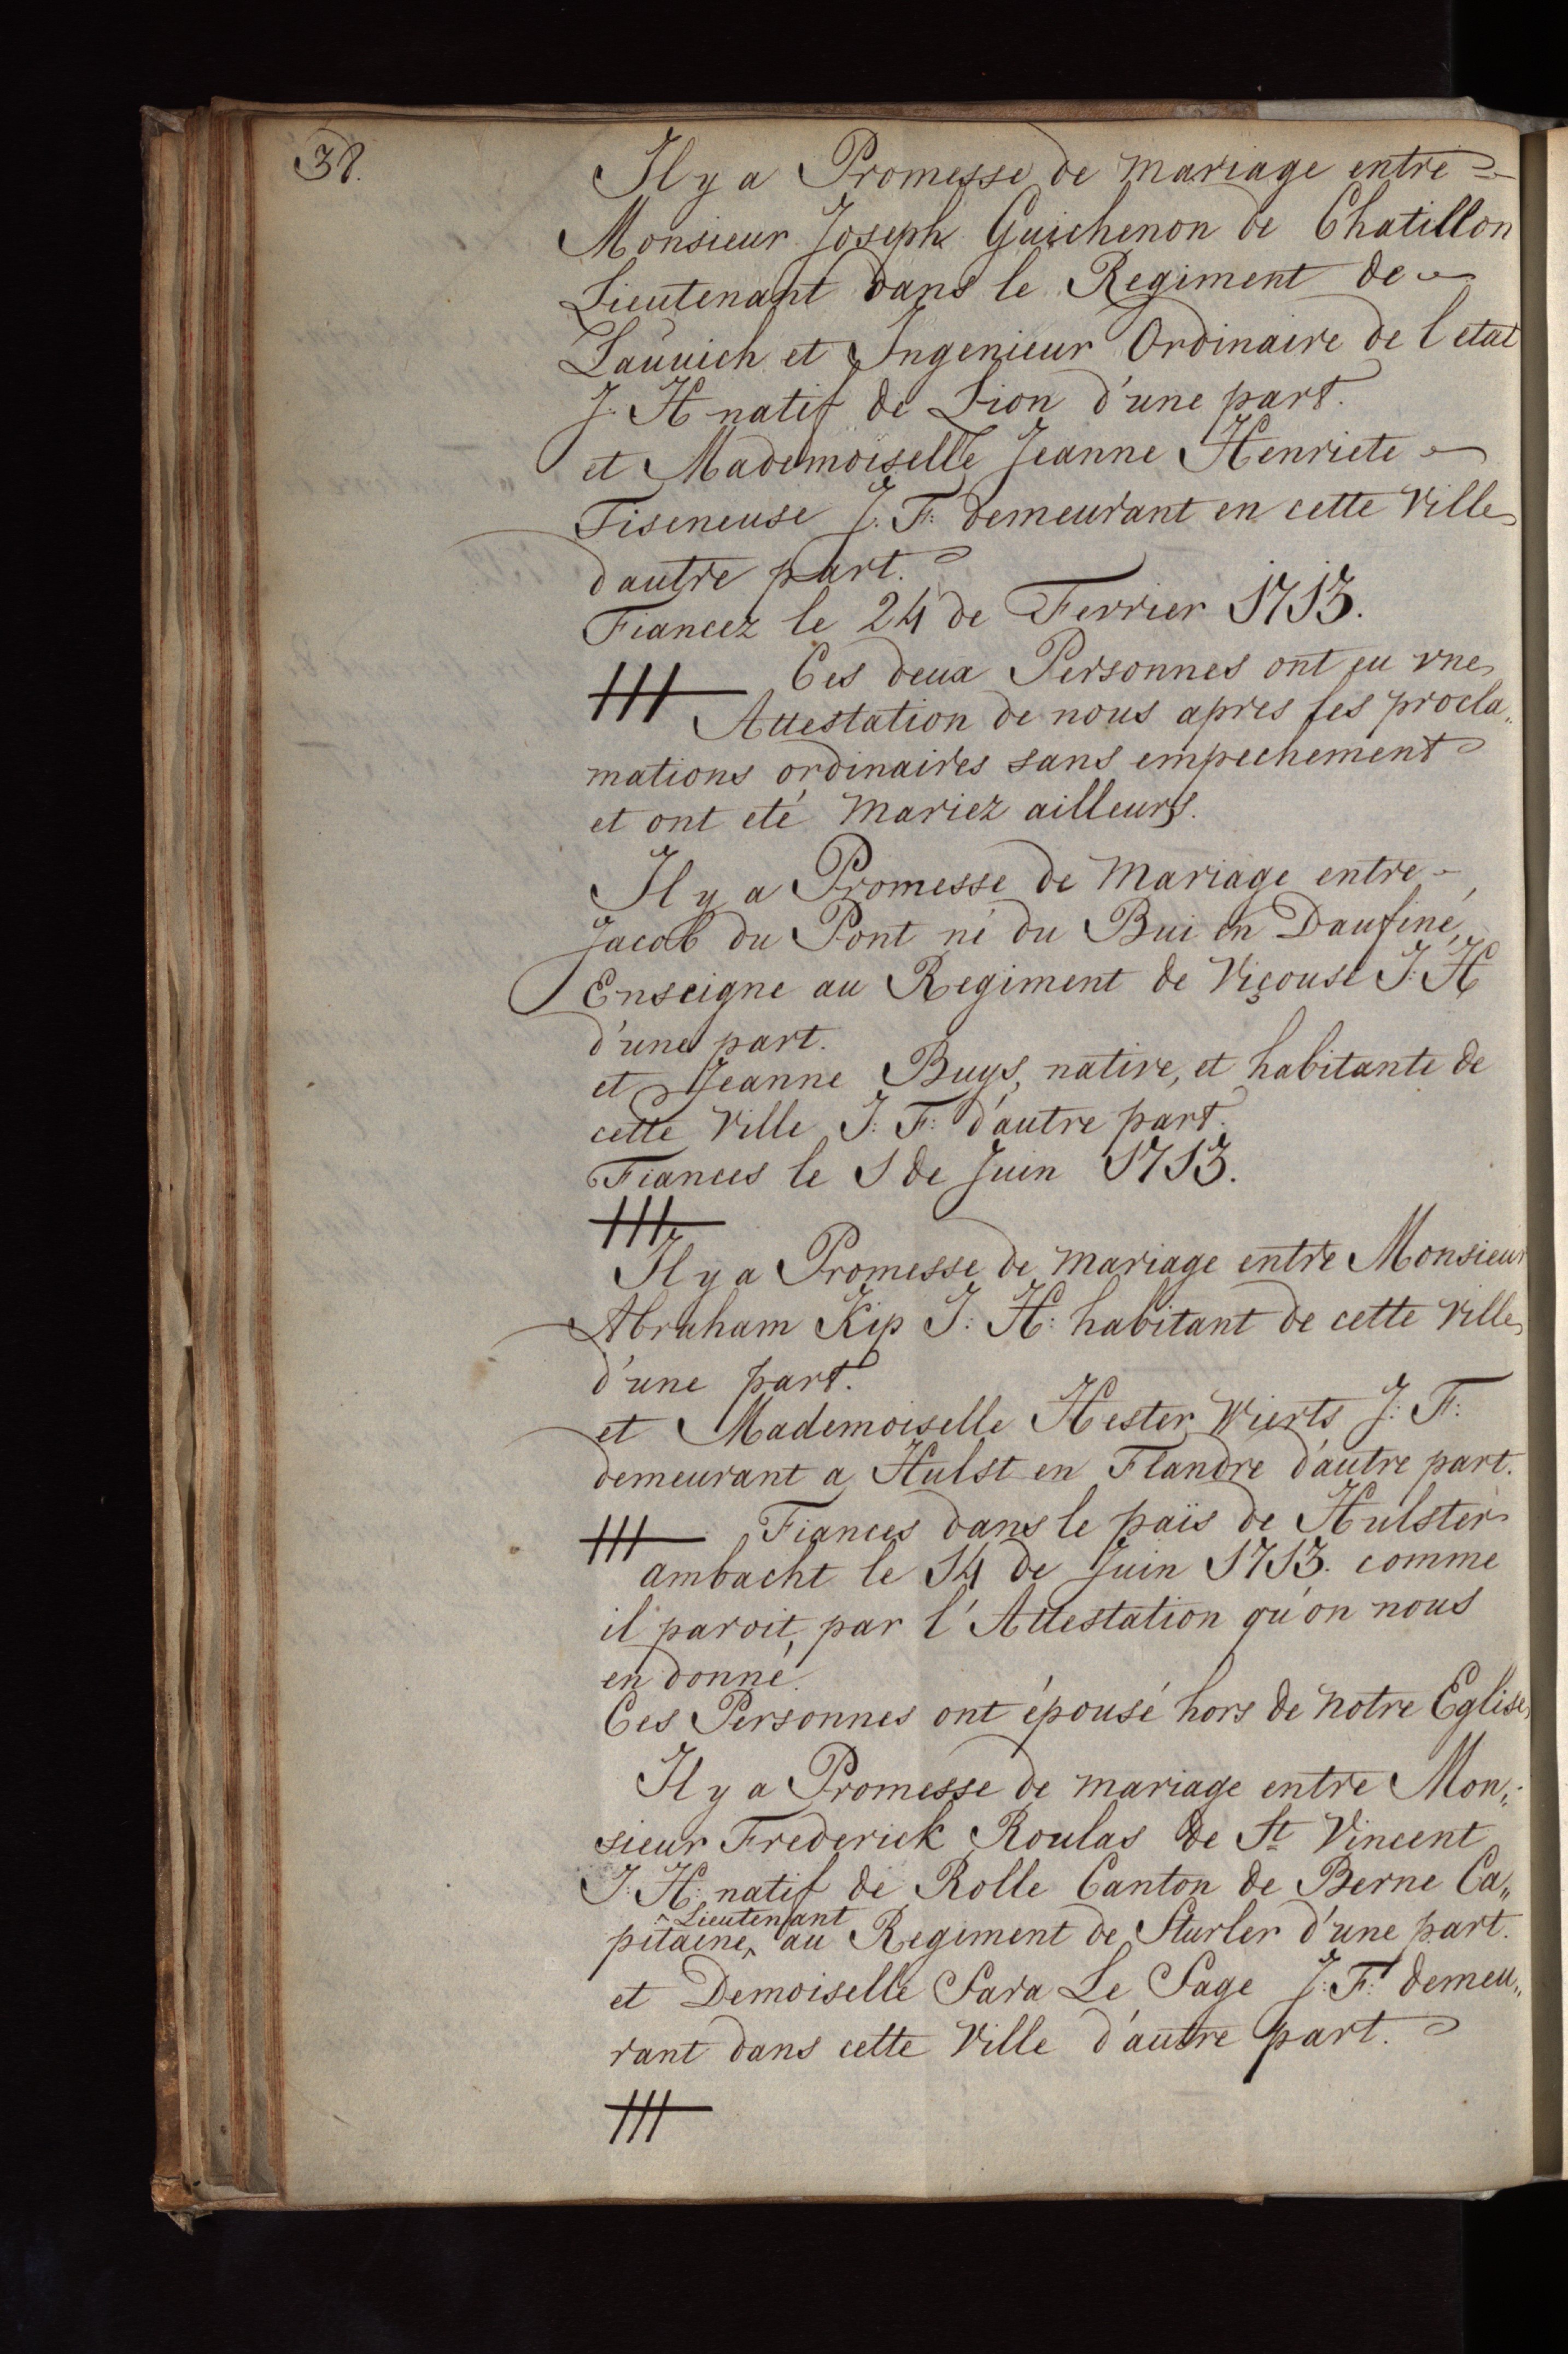 38.
Il y a Promesse de mariage entre
Monsieur Joseph Guichenon de Chatillon
Lieutenant dans le Regiment de
Lauuich et Ingenieur Ordinaire de l etat
J. H natif de Lion d'une part.
et Mademoiselle Jeanne Henriete
Fiseneuse J. F. demeurant en cette Ville
dautre part.
Fiancez le 24 de Fevrier 1713.
Ces deux Personnes ont eu vne
Attestation de nous apres les procla„
mations ordinaires sans empechement
et ont eté Mariez ailleurs.
Il y a Promesse de Mariage entre
Jacob du Pont né du Bui en Daufiné,
Enseigne au Regiment de Viçouse J: H
d'une part.
et Jeanne Buys, native, et habitante de
cette Ville J: F: d'autre part.
Fiances le 1 de Juin 1713.
Il y a Promesse de mariage entre Monsieur
Abraham Kip J: H: habitant de cette Ville
d'une part.
et Mademoiselle Hester Wierts J: F:
demeurant a Hulst en Flandre d'autre part.
Fiances dans le païs de Hulster
ambacht le 14 de Juin 1713. comme
il paroit, par l'Attestation qu'on nous
en donné.
Ces Personnes ont épousé hors de notre Eglise
Il y a Promesse de mariage entre Mon„
sieur Frederick Roulas de St Vincent
J: H: natif de Rolle Canton de Berne Ca„
^ Lieutenant
pitaine ^ au Regiment de Sturler d'une part.
et Demoiselle Sara Le Sage J: F: demeu„
rant dans cette Ville d'autre part.